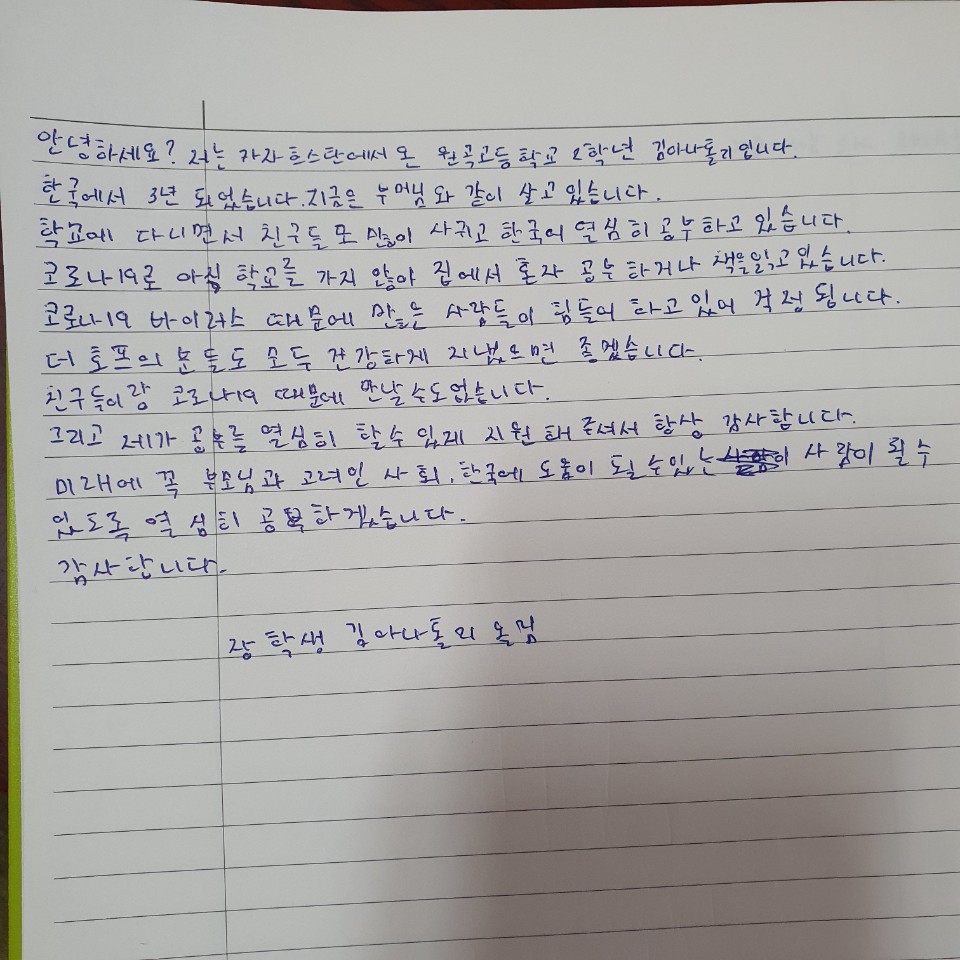 안녕하세요? 저는 카자흐스탄에서 온 원곡고등학교 2학년 김아나톨리입니다.
한국에서 3년 되었습니다. 지금은 부머님와 같이 살고 있습니다.
학교에 다니면서 친구들 또 많이 사귀고 한국어 열심히 공부하고 있습니다.
코로나19로 아직 학교를 가지 않아 집에서 혼자 공부하거나 책을 읽고 있습니다.
코로나19 바이러스 때문에 많은 사람들이 힘들어 하고 있어 걱정 됩니다.
더 호프의 분들도 모두 건강하게 지냈으면 좋겠습니다.
친구들이랑 코로나19 때문에 만날 수도 없습니다.
그리고 제가 공부를 열심히 할 수 있게 지원해 주셔서 항상 감사합니다.
미래에 꼭 부모님과 고려인 사회, 한국에 도움이 될 수 있는 사람이 될 수
있도록 열심히 공부하겠습니다.
감사합니다.
장학생 김아나톨리 올림